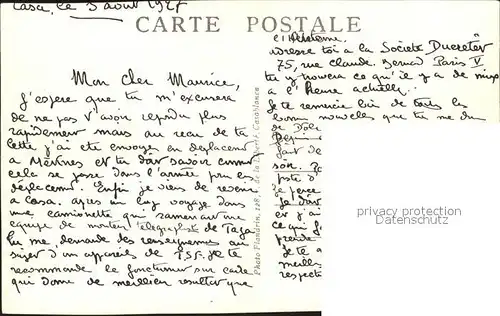 Casa, le 3 août 1927
CARTE POSTALE
Mon cher Maurice,
J'espère que tu m'excusera
de ne pas t'avoir répondu plus
rapidement mais au reçu de ta
lettre j'ai été envoyé en déplacement
à Meknes et tu dois savoir comment
cela se passe dans l'armée pour les
déplacements. Enfin je viens de revenir
à Casa. après un long voyage dans
une camionette qui ramenait une
équipe de monteur télégraphiste de Taza
tu me demande des renseignements au
sujet d'un appareil de T.S.F. Je te
recommande le fonctionner sur cadre
qui donne de meilleur resultat que
Photo Flandrin, 228, de la Liberté, Casablanca
l'antenne.
adresse toi à la Société Ducretet
75, rue Claude Bernard Paris V
tu y trouvera ce qu'il y a de mieux
à l'heure actuelle.
Je te remercie bien de toutes les
bonnes nouvelles que tu me donne
de
fait de
soir.
poste d'
je perce
Je
et j'ai
ce qui
prendre
Je te
meilleu
respect
privacy protection
Datenschutz